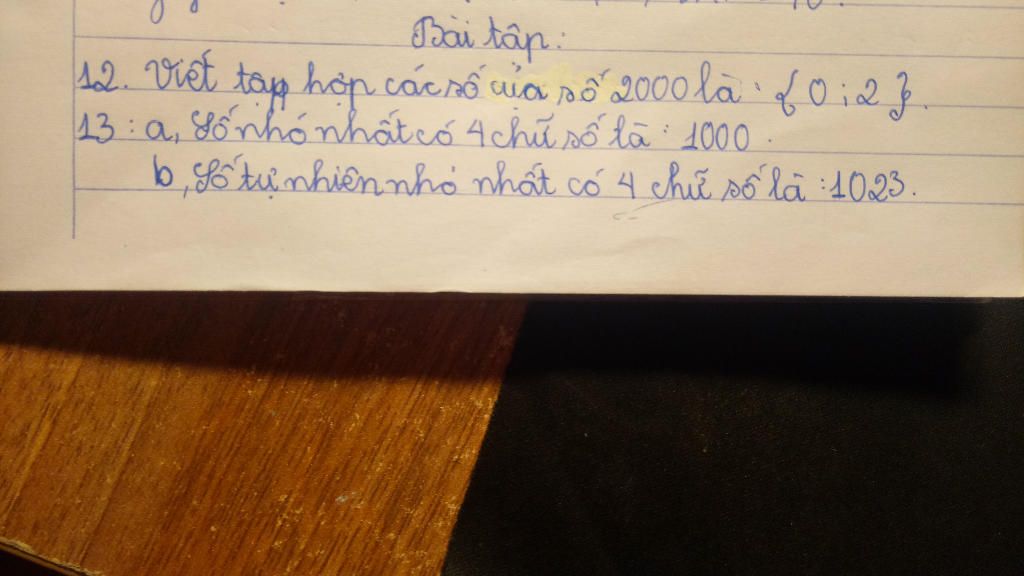 Bài tập:
12. Viết tập hợp các số của số 2000 là : { 0 ; 2 }.
13 : a, Số nhỏ nhất có 4 chữ số là : 1000.
b, Số tự nhiên nhỏ nhất có 4 chữ số là : 1023.